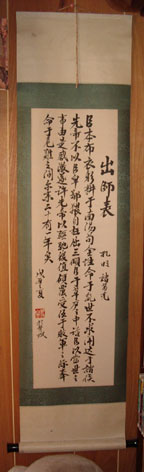 出師表
孔明 諸葛亮
臣本布衣躬耕于南陽苟全性命于乱世不求聞達于諸侯
先帝不以臣卑鄙猥自枉屈三顧臣于草廬之中諮臣以當世之
事由是感激遂許先帝以驅馳後值傾覆受任于敗軍之際奉
命于危難之間爾來二十有一年矣